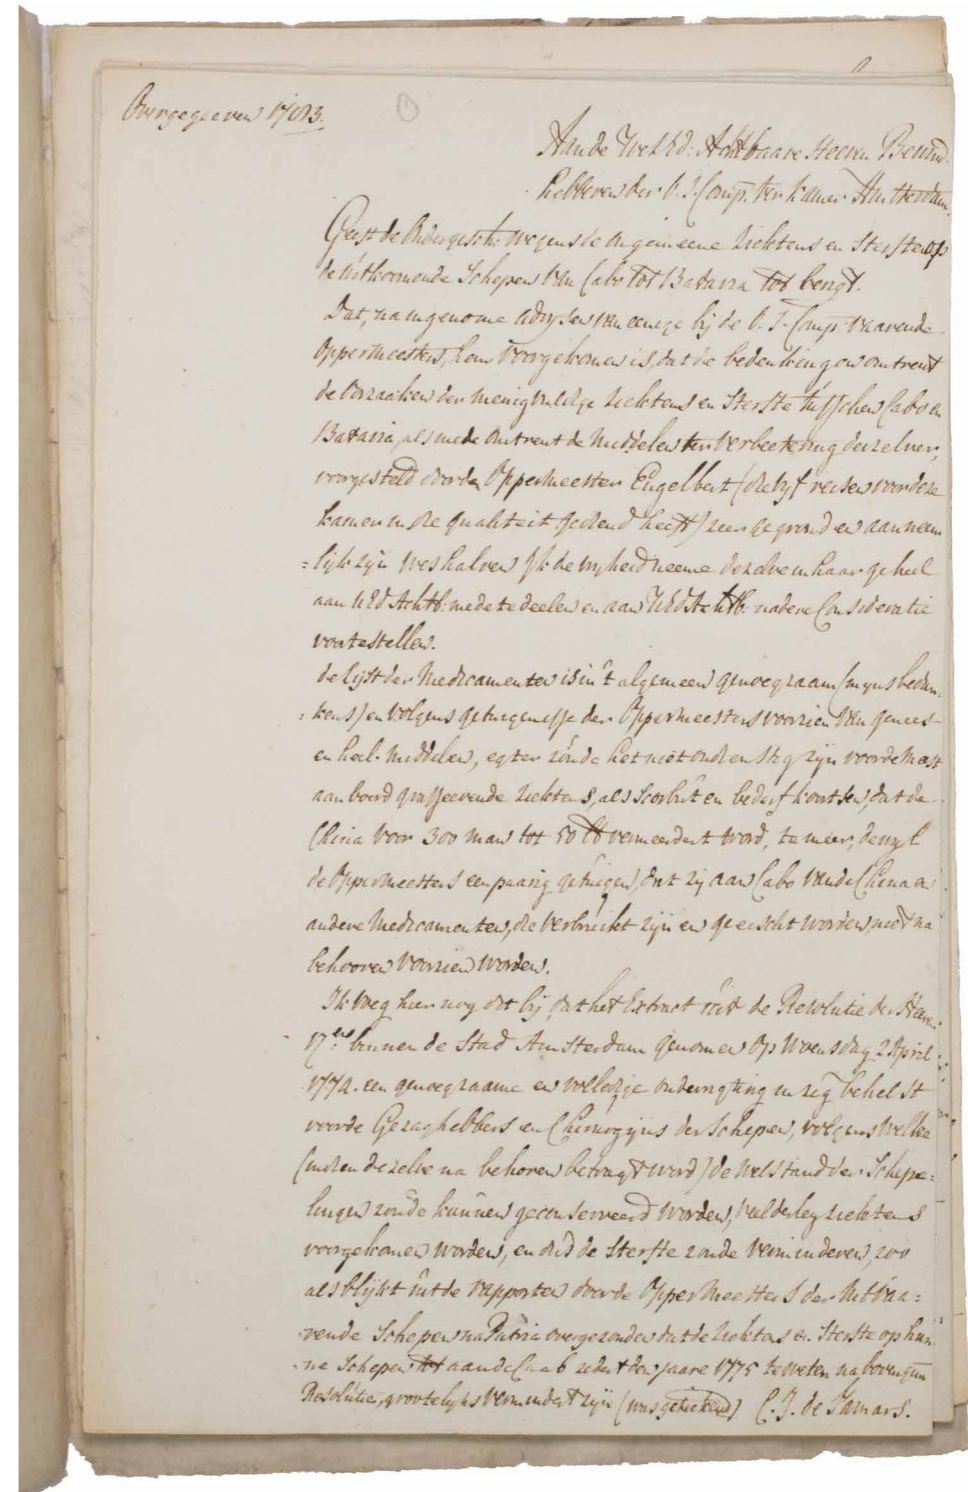 Overgegeeven 1783.
Aan de Wel Ed: Achtbaare Heeren Bewind-
hebberen der O. I. Comp. ter kamer Amsterdam.
Geeft de Ondergesch: wegens de Ongemeene Ziektens en Sterfte op
de uitkoomende Schepen van Cabo tot Batavia tot berigt.
Dat, na ingenome advysen van eenige bij de O. I. Comp. vaarende
Oppermeesters, hem voorgekomen is, dat de bedenkingen omtrent
de Oorzaaken der menigvuldige ziektens en Sterfte tusschen Cabo en
Batavia, als mede omtrent de Middelen ter verbeetering derzelver,
voorgesteld door den Oppermeester Engelbert (die vyf reisen voor deze
kamer in die qualiteit gediend heeft) zeer gegrond en aanneem
=lijk zijn weshalven Ik de vryheid neeme dezelve in haar geheel
aan UEd Achtb: mede te deelen en aan UEd Achtb: nadere Consideratie
voor te stellen.
de Lijst der Medicamenten is in 't algemeen genoegzaam (myns bedun-
=kens) en volgens getuigenisse der Oppermeesters voorzien van genees-
en heel-middelen, egter zoude het niet ondienstig zijn voor de Meest
aan boord grasseerende ziektens, als Scorbut en bederf koortsen, dat de
China voor 300 man tot 50 lb vermeerdert word, te meer, dewyl
de Oppermeesters eenpaarig getuigen, dat zij aan Cabo van de China en
andere Medicamenten, die verbruikt zijn en geeischt worden, niet na
behooren voorzien worden.
Ik voeg hier nog dit bij, dat het Extract uit de Resolutie der Heeren
17en binnen de Stad Amsterdam genomen op Woensdag 2 April
1774. een genoegzaame en volledige onderrigting in zig behelst
voor de Gezaghebbers en Chirurgijns der Schepen, volgens welke
(indien dezelve na behoren betragt werd) de Welstand der Schepe=
lingen zoude kunnen geconserveerd worden, veelderley ziektens
voorgekomen worden, en dus de Sterfte zoude verminderen, zoo
als blijkt uit de rapporten door de Oppermeesters der uitvaa=
rende Schepen na Patria overgezonden dat de ziektens en Sterfte op hun
=ne Schepen tot aan de Caab zedert den jaare 1775 te weten na bovengem
Resolutie, grootelyks vermindert zijn (was getekend) C. J. de Famars.